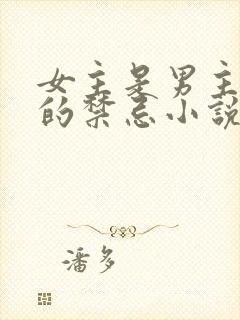 女主是男主
的禁忌小說
潘多